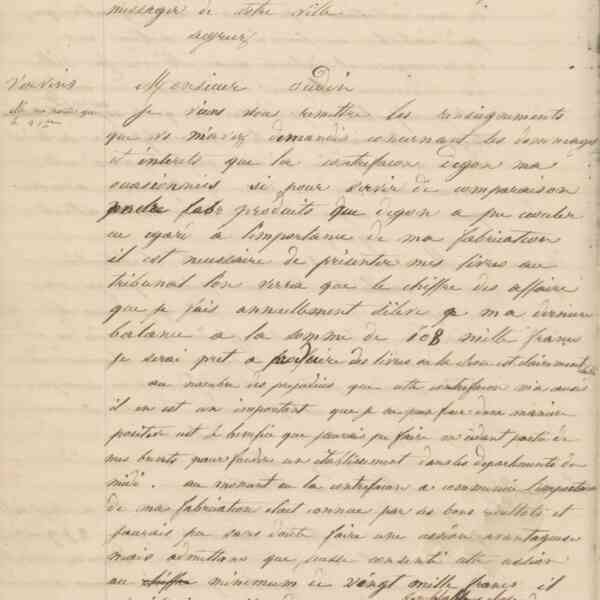 messager de votre ville
Vervins
Monsieur Oudin
Je viens vous remettre les renseignements
que vs m'avez demandés concernant les dommages
et interets que la contrefacon degon ma
ocasionnées si pour servir de comparaison
fabr produits que degon a pu couler
eu egard a l'importance de ma fabrication
il est necessaire de présenter mes livres au
tribunal l'on verra que le chiffre des affaire
que je fais annuellement s'éleve ma derniere
balance a la somme de 108 mille francs
je serai pret a produire des livres ou la chose est clairement
au nombre des prejudices que cette contrefacon m'a causé
il en est un important que je ne puis faire d'une maniere
positive est le benefice que jaurais pu faire en cédant partie de
mes brevets pour fonder un etablissement dans les departements du
midi. au moment ou la contrefacon a commencée l'importance
de ma fabrication etait connue par les bons resultats et
jaurais pu sans doute faire une cession avantageuse
mais admettons que jeusse consenti cette cession
au chiffre minimum de vingt mille francs il